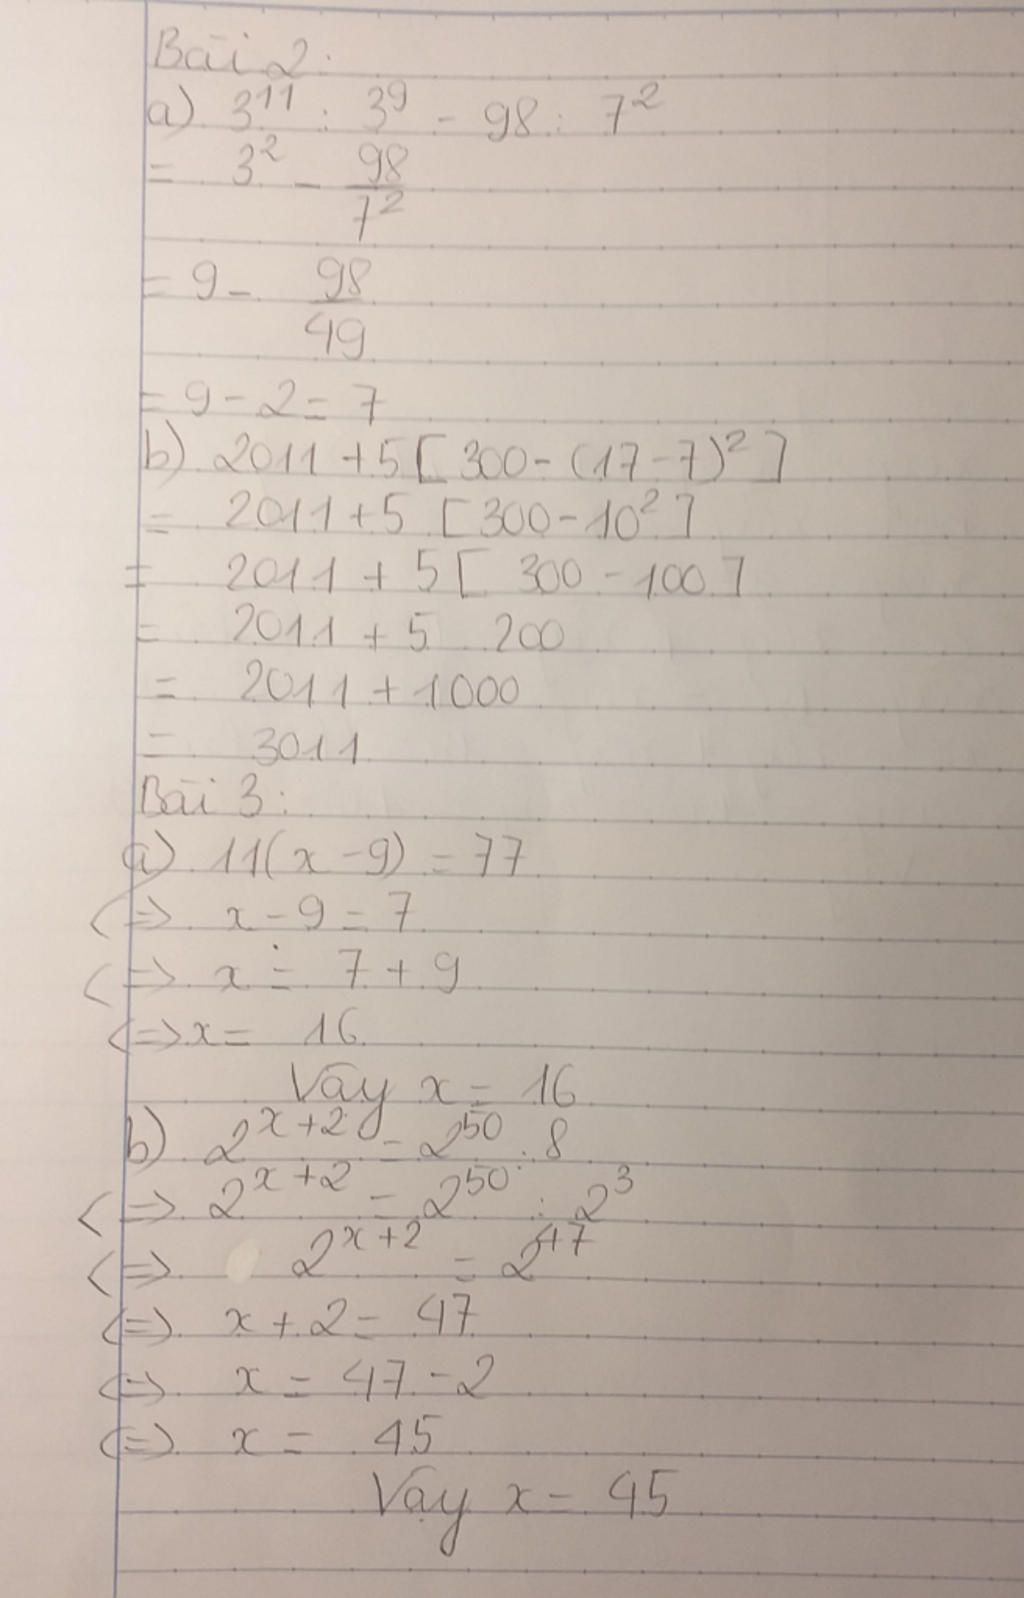 Bài 2:
a) 3¹¹ : 3⁹ - 98 : 7²
= 3² - 98/7²
= 9 - 98/49
= 9 - 2 = 7
b) 2011 + 5 [ 300 - (17 - 7)² ]
= 2011 + 5 [ 300 - 10² ]
= 2011 + 5 [ 300 - 100 ]
= 2011 + 5 . 200
= 2011 + 1000
= 3011
Bài 3:
a) 11(x - 9) = 77
<=> x - 9 = 7
<=> x = 7 + 9
<=> x = 16
Vậy x = 16
b) 2ˣ⁺² = 2⁵⁰ : 8
<=> 2ˣ⁺² = 2⁵⁰ : 2³
<=> 2ˣ⁺² = 2⁴⁷
<=> x + 2 = 47
<=> x = 47 - 2
<=> x = 45
Vậy x = 45